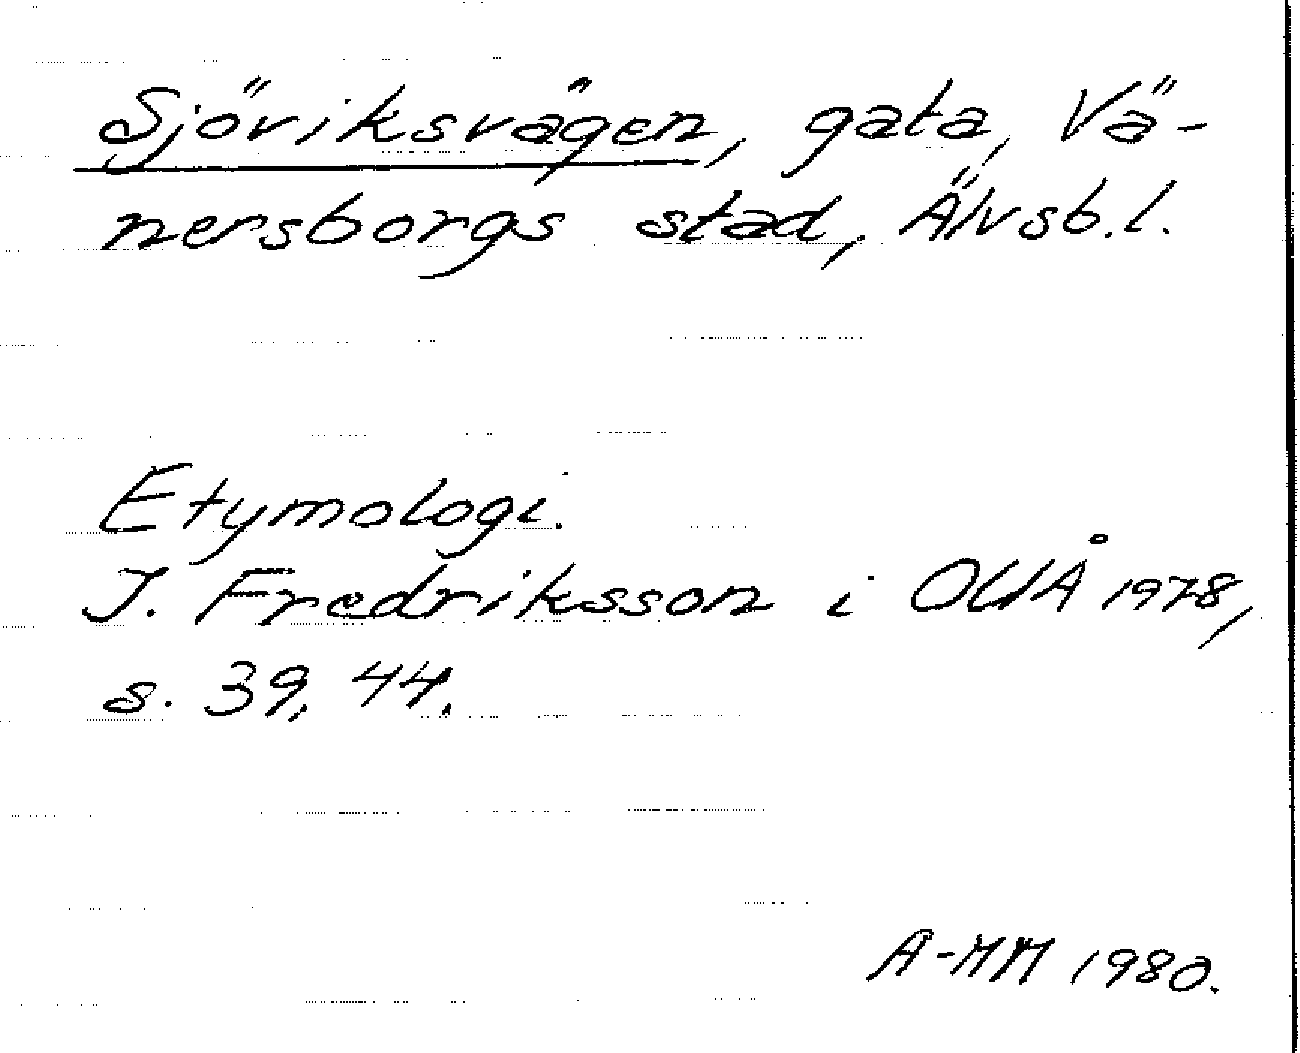 Sjöviksvägen, gata, Vä-
nersborgs stad, Älvsb.l.
Etymologi.
I. Fredriksson i OUÅ 1978,
s. 39, 44.
A-MM 1980.